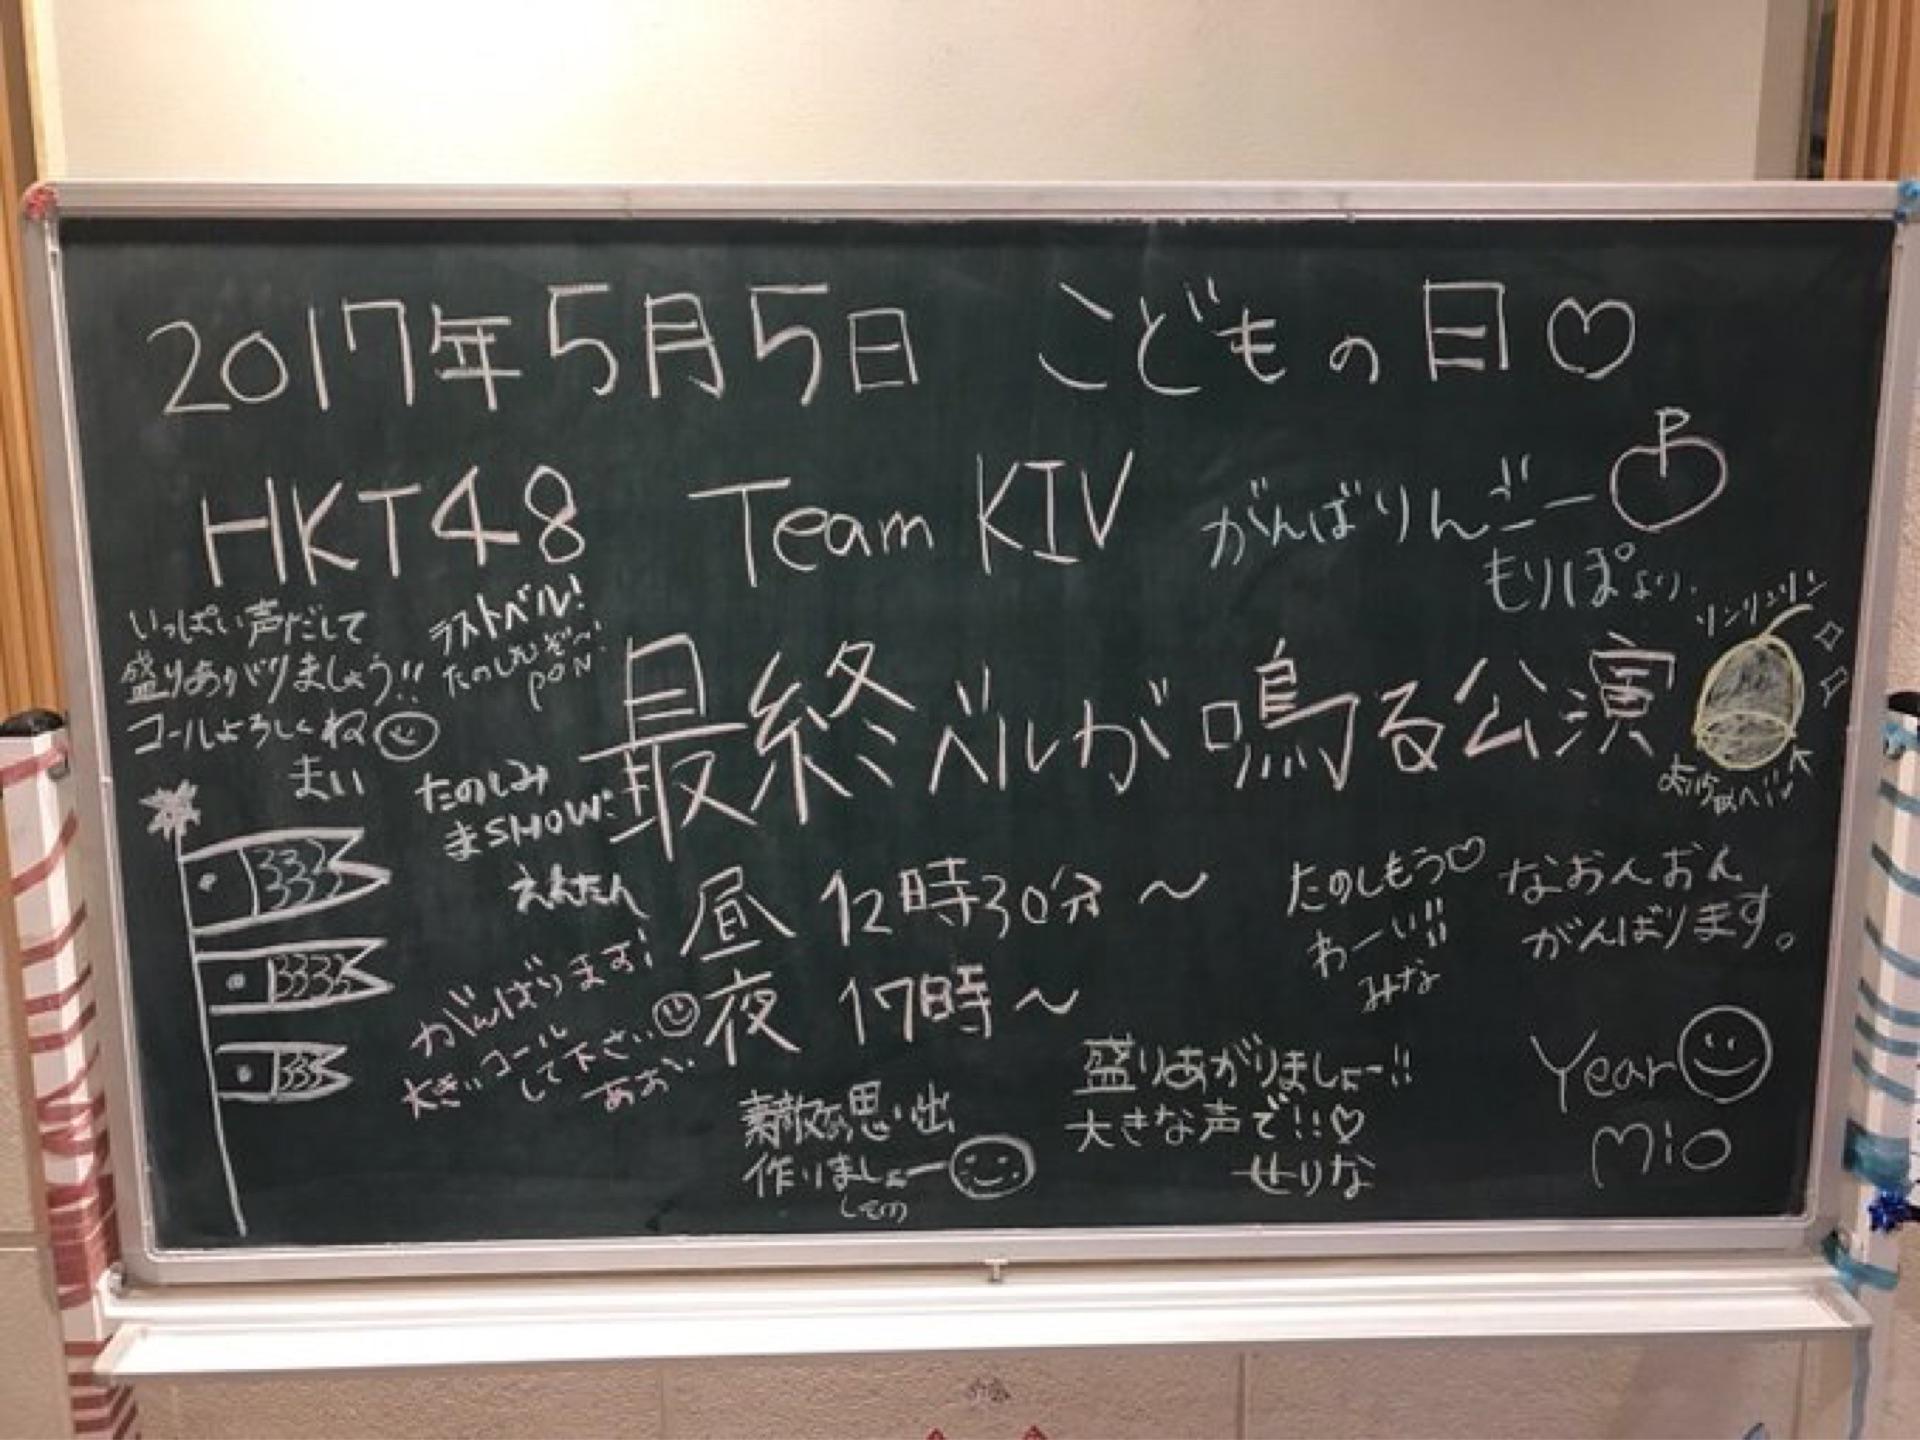 2017年5月5日 こどもの日♡
HKT48 Team KIV
がんばりんごー
もりぽより
いっぱい声だして
盛りあがりましょう!!
コールよろしくね
まい
ラストベル!
たのしむぞ〜!
PON
リンリンリン
最終ベルが鳴る公演
たのしみ
まSHOW:
えれたん
昼 12時30分〜
夜 17時〜
たのしもう♡
わーい!!
みな
なおんおん
がんばります。
がんばります!
大きいコール
して下さい
あお
素敵な思い出
作りましょー
しての
盛りあがりましょー!!
大きな声で!!♡
せりな
Year
Mio